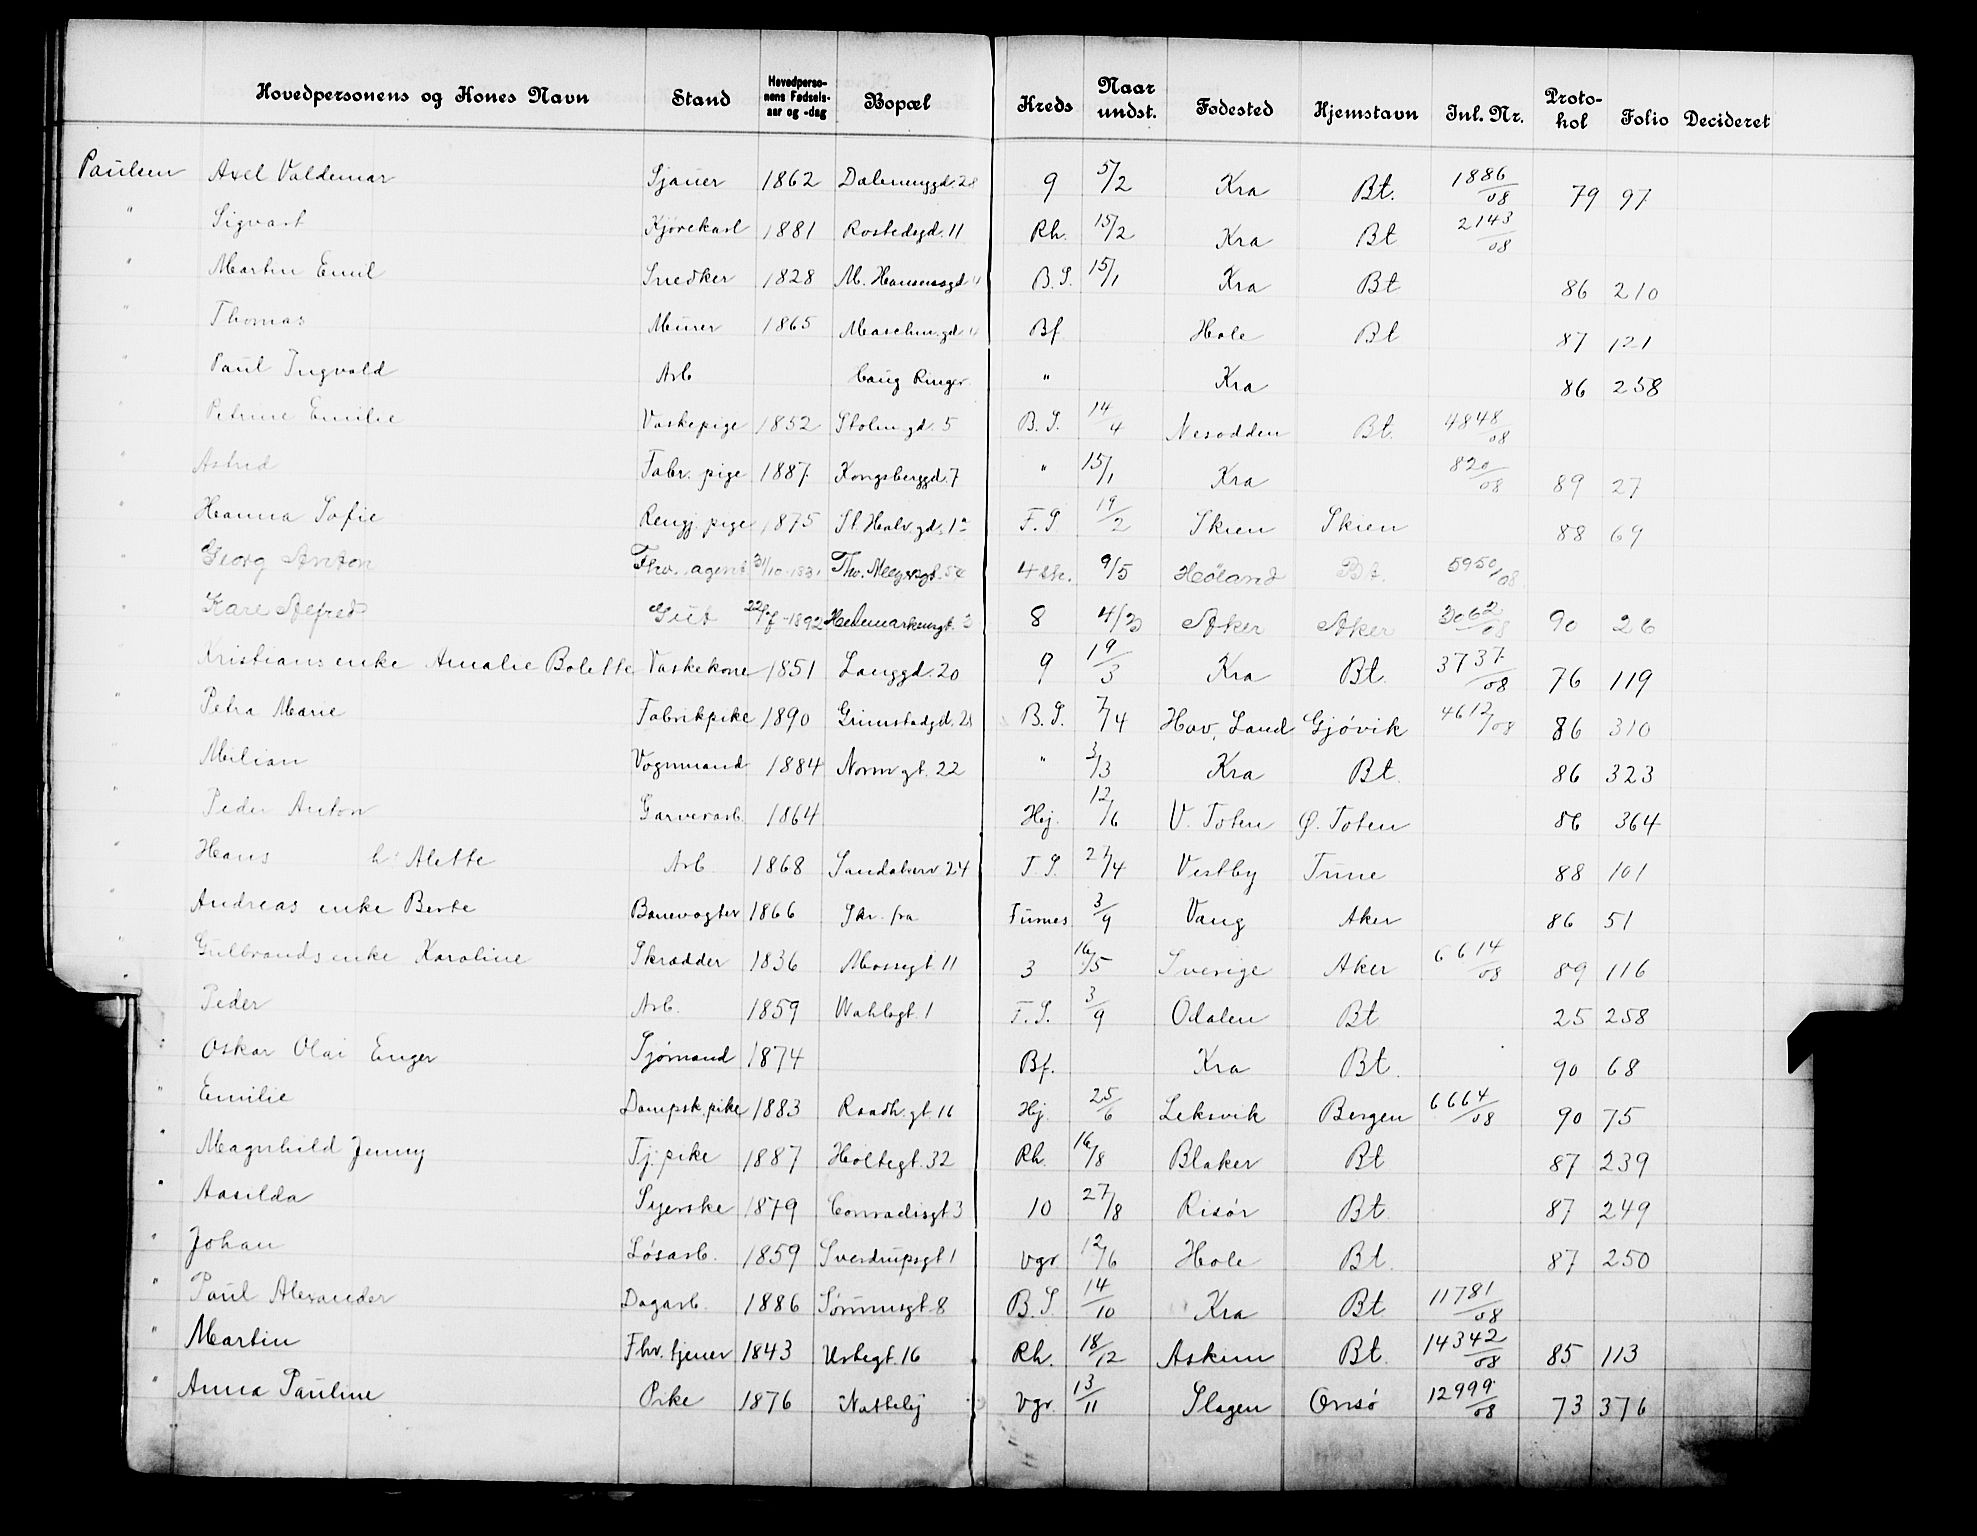 Hovedpersonens og Kones Navn Stand Hovedpersonens Fødselsaar og -dag Bopæl Kreds Naar undst. Fødested Hjemstavn Inl. Nr. Protokol Folio Decideret
Paulsen Axel Valdemar Sjauer 1862 Dalenenggd. 28 9 5/2 Kra Bt. 1886/08 79 97
" Sigvart Kjørekarl 1881 Rostedsgd. 11 Rh. 15/2 Kra Bt 2143/08
" Martin Emil Snedker 1828 M. Hansensgd B.S. 15/1 Kra Bt 86 210
" Thomas Murer 1865 Maschin.gd Bf Hole Bt 87 121
" Paul Ingvald Arb Haug Ringer. " Kra 86 258
" Petrine Emilie Vaskepige 1852 Stolm.gd. 5 B.S. 14/4 Nesodden Bt. 4848/08
" Astrid Fabr. pige 1887 Kongsberggd. 7 " 15/1 Kra 820/08 89 27
" Hanna Sofie Rengj. pige 1875 St. Halv.gd. 1a F.S. 19/2 Skien Skien 88 69
" Georg Anton Fhv. agent 31/10-1831 Thv. Meyersgt. 54 4de. 9/5 Høland Bt. 5950/08
" Kare Alfred Gut 1892 Hedemarkengt. 3 8 4/3 Aker Aker 3062/08 90 26
Kristians enke Amalie Bolette Vaskekone 1851 Langgd. 20 9 19/3 Kra Bt. 3737/08 76 119
" Petra Marie Fabrikpike 1890 Grimstadgd. 28 B.S. 7/4 Hov, Land Gjøvik 4612/08 86 310
" Milian Vognmand 1884 Norm gt. 22 " 3/3 Kra Bt. 86 323
" Peder Anton Garverarb. 1864 Hj. 12/6 V. Toten Ø. Toten 86 364
" Hans h: Alette Arb 1868 Sandakerv 24 F.S. 27/4 Vestby Tune 88 101
" Andreas enke Berte Banevogter 1866 Skr. fra Furnes 3/9 Vang Aker 86 51
" Gulbrands enke Karoline Skrædder 1836 Mossegt. 11 3 16/5 Sverige Aker 6614/08 89 116
" Peder Arb. 1859 Wahlsgt. 1 F.S. 3/9 Odalen Bt 25 258
" Oskar Olai Enger Sjømand 1874 Bf. Kra Bt. 90 68
" Emilie Dampsk.pike 1883 Raadh.gt. 16 Hj. 25/6 Leksvik Bergen 6664/08 90 75
" Magnhild Jenny Tj. pike 1887 Holtegt. 32 Rh. 16/8 Blaker Bt 87 239
" Aasilda Syerske 1879 Conradisgt 3 10 27/8 Risør Bt. 87 249
" Johan Løsarb. 1859 Sverdrupsgt 1 Vgr 12/6 Hole Bt. 87 250
" Paul Alexander Dagarb. 1886 Sørumsgt. 8 B.S. 14/10 Kra Bt 11781/08
" Martin Fhv. tjener 1843 Ustegt. 16 Rh. 18/12 Askim Bt. 14342/08 85 113
" Anna Pauline Pike 1876 Nattely Vgr. 13/11 Slagen Onsø 12999/08 73 376